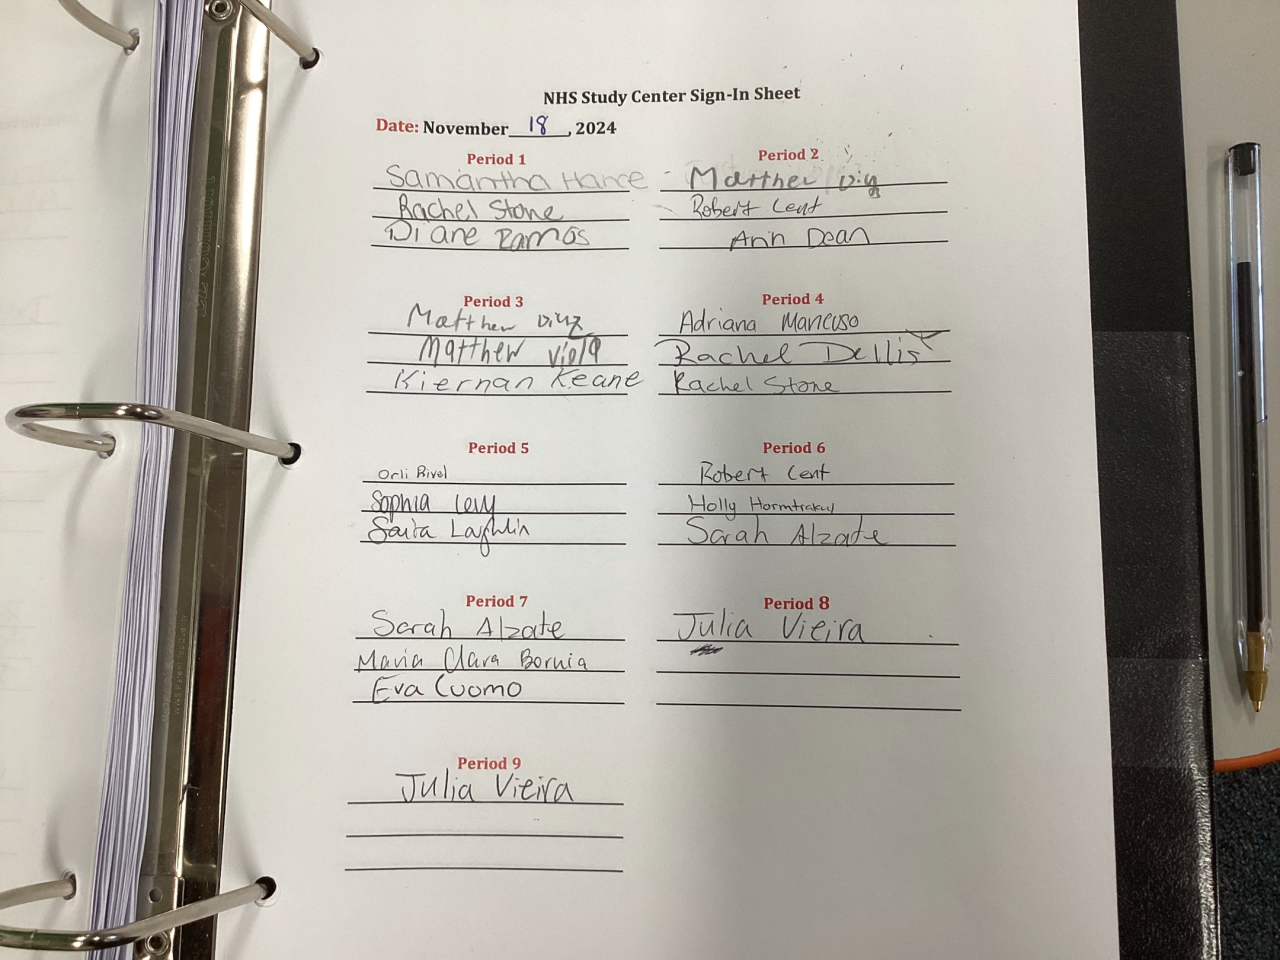 NHS Study Center Sign-In Sheet
Date: November 18, 2024
Period 1
Samantha Hance
Rachel Stone
Diane Ramos
Period 2
Matthew
Robert Cent
Ann Dean
Period 3
Matthew
Matthew Viola
Kiernan Keane
Period 4
Adriana Mancuso
Rachel Dellis
Rachel Stone
Period 5
Orli Rivel
Sophia Levy
Laughlin
Period 6
Robert Cent
Holly
Sarah Alzate
Period 7
Sarah Alzate
Maria Clara Bornia
Eva Cuomo
Period 8
Julia Vieira
Period 9
Julia Vieira